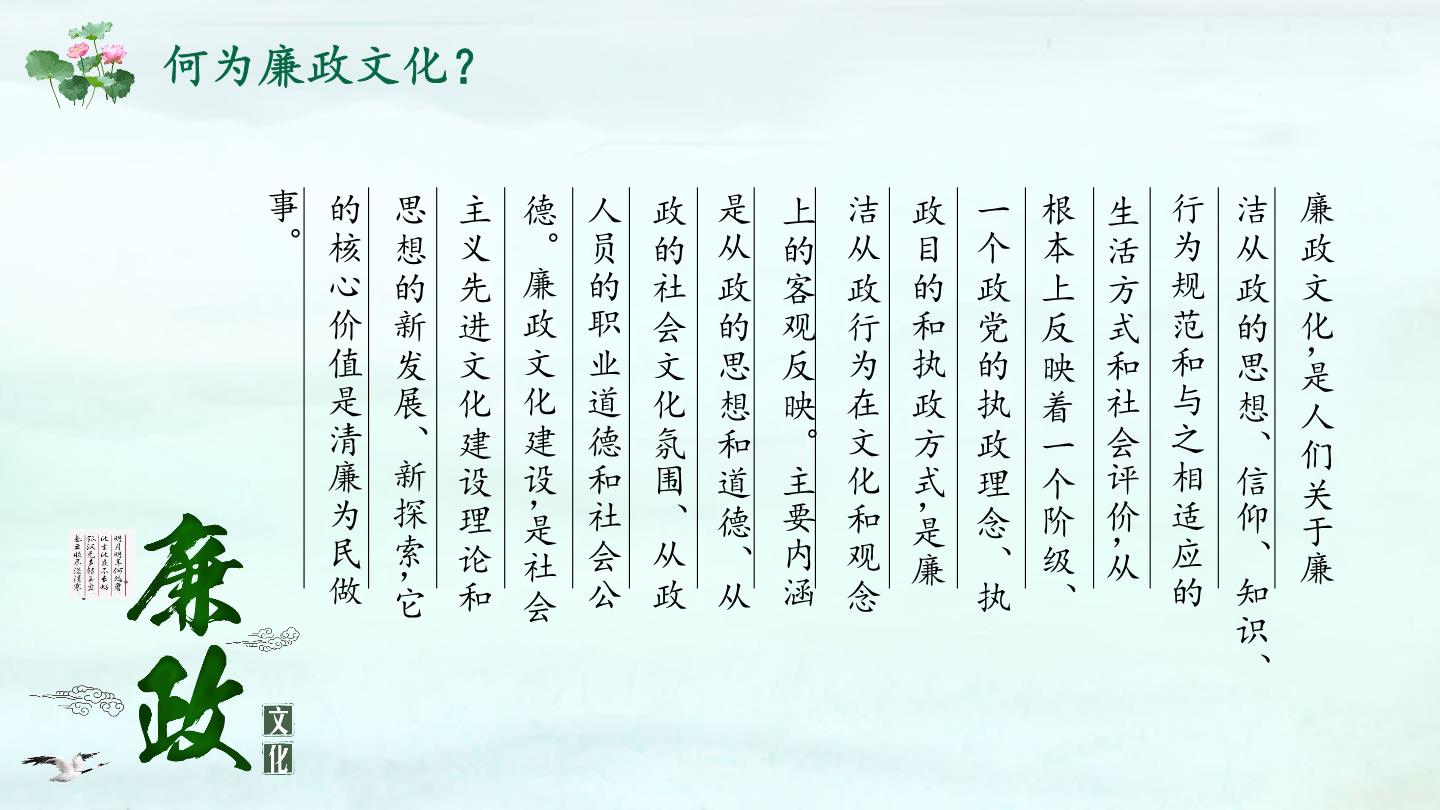 何为廉政文化？
廉政文化，是人们关于廉
洁从政的思想、信仰、知识、
行为规范和与之相适应的
生活方式和社会评价，从
根本上反映着一个阶级、
一个政党的执政理念、执
政目的和执政方式，是廉
洁从政行为在文化和观念
上的客观反映。主要内涵
是从政的思想和道德、从
政的社会文化氛围、从政
人员的职业道德和社会公
德。廉政文化建设，是社会
主义先进文化建设理论和
思想的新发展、新探索，它
的核心价值是清廉为民做
事。
廉政
文化